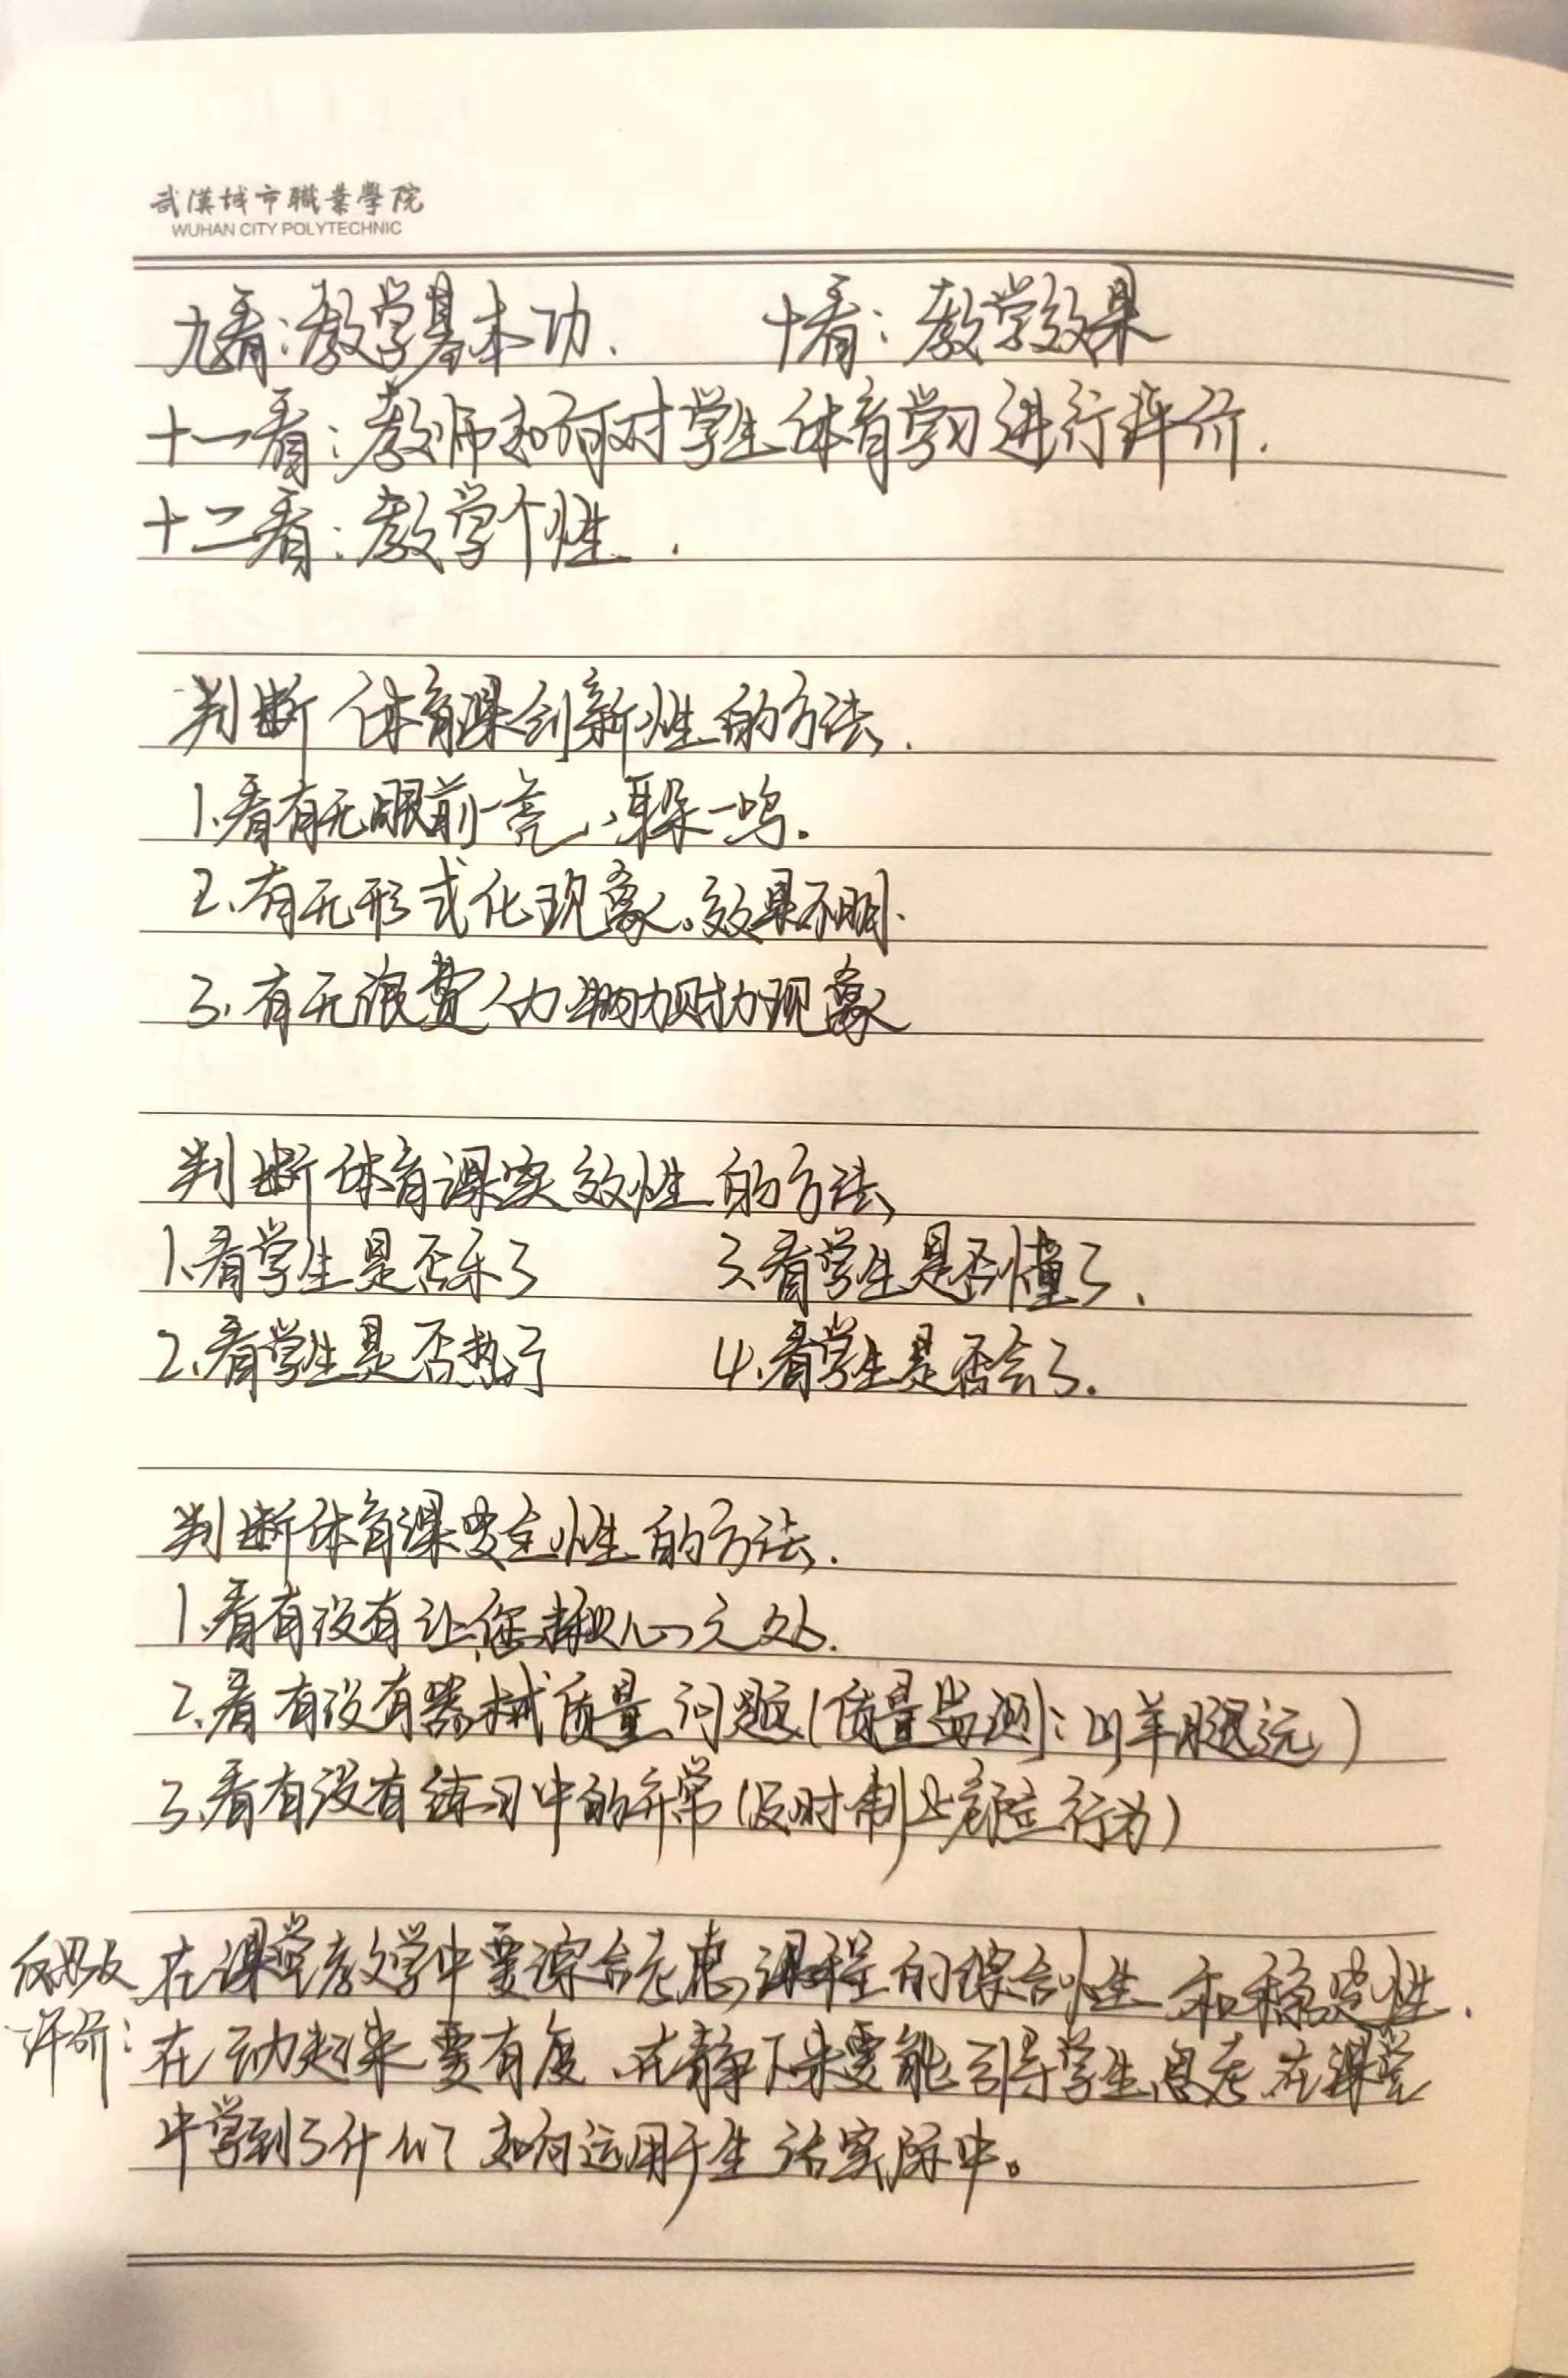 武漢城市職業學院
WUHAN CITY POLYTECHNIC
九看:教学基本功. 十看:教学效果
十一看:教师如何对学生体育学习进行评价.
十二看:教学个性.
判断体育课创新性的方法.
1.看有无眼前一亮、耳朵一鸣.
2.有无形式化现象。效果不明.
3.有无浪费人力物力财力现象
判断体育课实效性的方法
1.看学生是否乐了 3.看学生是否懂了.
2.看学生是否热了 4.看学生是否会了.
判断体育课安全性的方法.
1.看有没有让您揪心之处.
2.看有没有器械质量问题(质量监测:山羊腿远)
3.看有没有练习中的异常(及时制止行为)
反思及 在课堂教学中要综合考虑课程的综合性和稳定性.
评价: 在动起来要有度、在静下来要能引导学生思考在课堂
中学到了什么 如何运用于生活实际中。